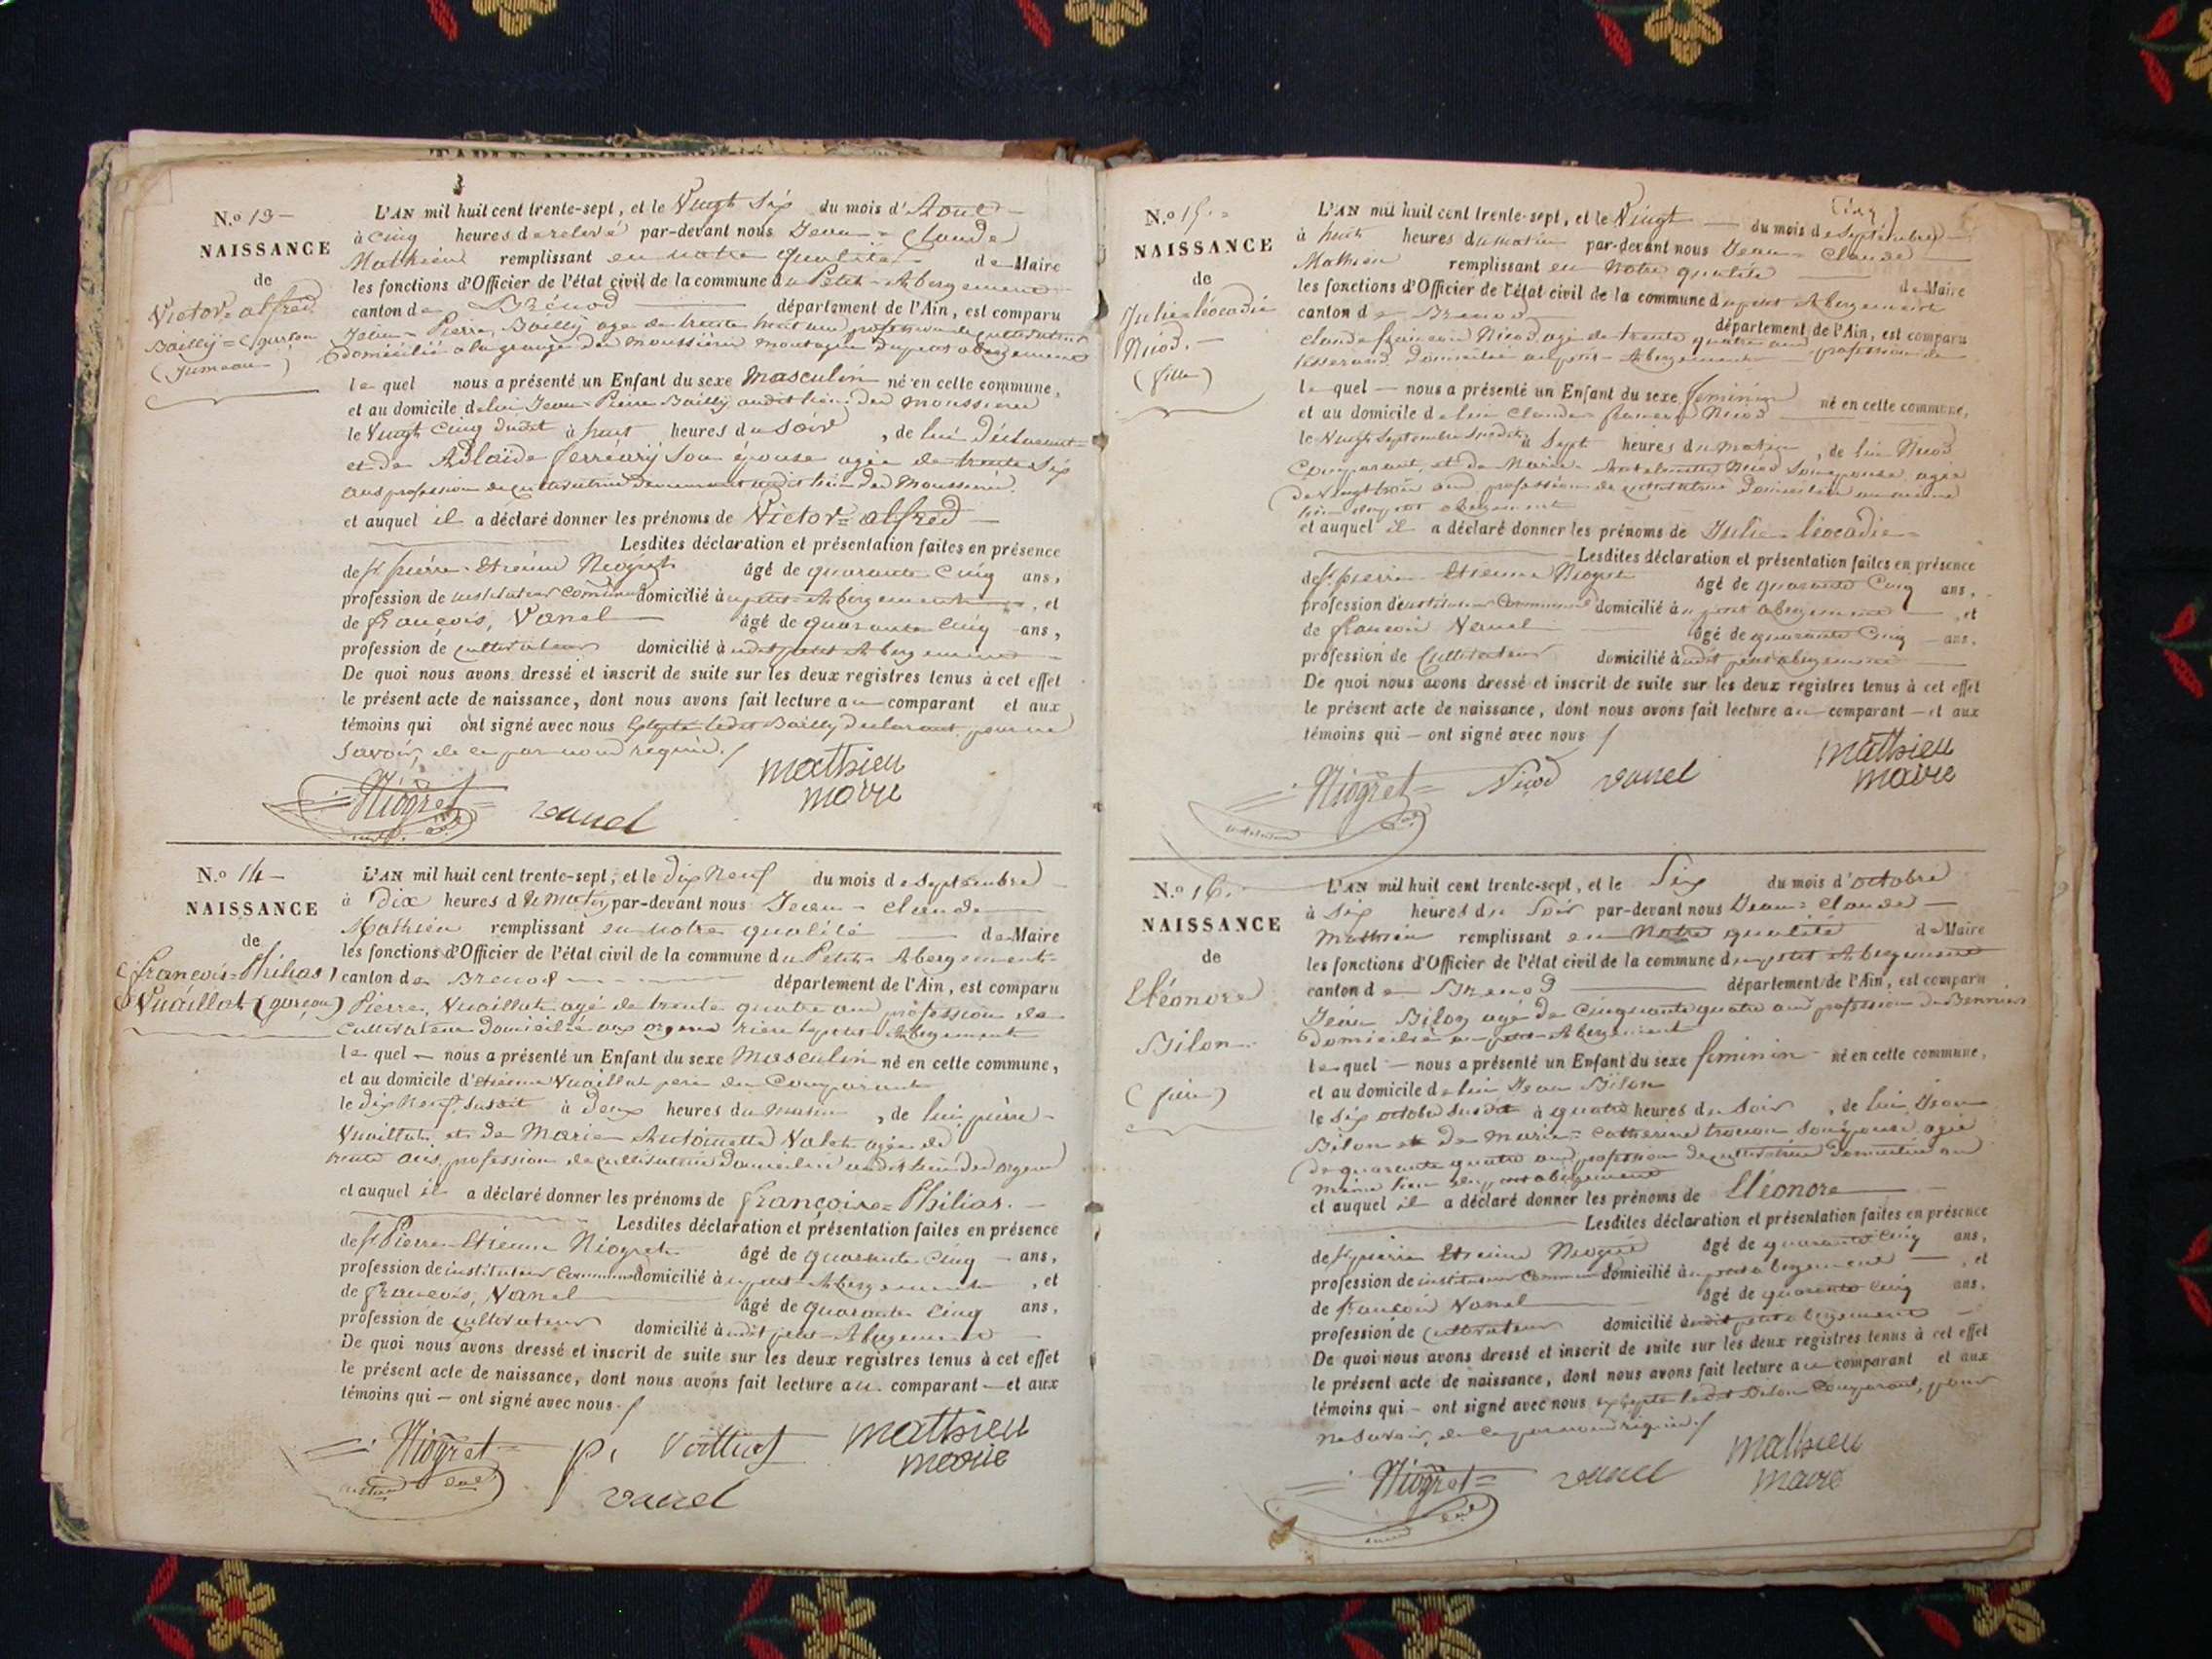 N.º 13
NAISSANCE
de
Victor = alfred
Bailly = garçon
(Jumeau)
L'AN mil huit cent trente-sept, et le Vingt Six du mois d'Aout
à cinq heures de relevé par-devant nous Jean = Claude
Mathieu remplissant en notre qualité de Maire
les fonctions d'Officier de l'état civil de la commune du Petit-Abergement
canton de Brénod département de l'Ain, est comparu
Jean = Pierre Bailly agé de trente huit ans profession de cultivateur
domicilié a la grange des moussières montagne du petit abergement
lequel nous a présenté un Enfant du sexe Masculin né en cette commune,
et au domicile de lui Jean-Pierre Bailly audit lieu des moussieres
le Vingt Cinq dudit à huit heures du Soir, de lui déclarant
et de Adlaïde ferréary Son épouse agée de trente Six
ans profession de cultivatrice demeurant audit lieu des Moussieres.
et auquel il a déclaré donner les prénoms de Victor = alfred
Lesdites déclaration et présentation faites en présence
de Sr. pierre-Etienne Niogret âgé de quarante Cinq ans,
profession de instituteur Communal domicilié au petit-Abergement, et
de françois, Vanel âgé de quarante Cinq ans,
profession de cultivateur domicilié à udit petit Abergement
De quoi nous avons dressé et inscrit de suite sur les deux registres tenus à cet effet
le présent acte de naissance, dont nous avons fait lecture au comparant et aux
témoins qui ont signé avec nous Excepté ledit Bailly déclarant pour ne
Savoir, de ce par nous requis./
Niogret
vanel
mathieu
maire
N.º 14
NAISSANCE
de
françois=Philias
Vuaillat (garçon)
L'AN mil huit cent trente-sept, et le dix Neuf du mois de Septembre
à Dix heures du Matin par-devant nous Jean = claude
Mathieu remplissant en notre qualité de Maire
les fonctions d'Officier de l'état civil de la commune du Petit-Abergement
canton de Brenod département de l'Ain, est comparu
Pierre, Vuaillat agé de trente quatre ans profession de
Cultivateur domicilié aux orgens rière le petit Abergement
lequel nous a présenté un Enfant du sexe Masculin né en cette commune,
et au domicile d'etienne Vuaillat père du Comparant
le dix Neuf susdit à deux heures du matin, de lui pierre
Vuaillat, et de Marie Antoinette Valet agée de
trente ans, profession de cultivatrice domiciliée audit lieu des orgens
et auquel il a déclaré donner les prénoms de françois=Philias.
Lesdites déclaration et présentation faites en présence
de Sr. Pierre-Etienne Niogret âgé de quarante Cinq ans,
profession de instituteur Communal domicilié au petit-Abergement, et
de françois, Vanel âgé de quarante Cinq ans,
profession de cultivateur domicilié à udit petit-Abergement
De quoi nous avons dressé et inscrit de suite sur les deux registres tenus à cet effet
le présent acte de naissance, dont nous avons fait lecture au comparant et aux
témoins qui ont signé avec nous./
Niogret p. mathieu
maire
vanel
N.º 15
NAISSANCE
de
Julie=léocadie
Nicod.
(fille)
L'AN mil huit cent trente-sept, et le Vingt du mois de Septembre
à huit heures du matin par-devant nous Jean = Claude
Mathieu remplissant en Notre qualité de Maire
les fonctions d'Officier de l'état civil de la commune du petit Abergement
canton de Brenod département de l'Ain, est comparu
claude françois Nicod agé de trente quatre ans profession de
tisserand domicilié au petit-Abergement
lequel nous a présenté un Enfant du sexe feminin né en cette commune,
et au domicile de lui Claude françois Nicod
le Vingt Septembre Susdit à Sept heures du matin, de lui Nicod
Comparant, et de Marie Nicod Son epouse agée
de Vingt trois ans profession de cultivatrice domiciliée au meme
lieu du petit abergement
et auquel il a déclaré donner les prénoms de Julie=léocadie
Lesdites déclaration et présentation faites en présence
de Sr. pierre Etienne Niogret âgé de quarante Cinq ans,
profession d'instituteur Communal domicilié au petit abergement, et
de françois Vanel âgé de quarante Cinq ans,
profession de Cultivateur domicilié à udit petit abergement
De quoi nous avons dressé et inscrit de suite sur les deux registres tenus à cet effet
le présent acte de naissance, dont nous avons fait lecture au comparant et aux
témoins qui ont signé avec nous /
Niogret Nicod vanel mathieu
maire
N.º 16
NAISSANCE
de
Eléonore
Bilon
L'AN mil huit cent trente-sept, et le Six du mois d'octobre
à Six heures du Soir par-devant nous Jean = Claude
Mathieu remplissant en Notre qualité de Maire
les fonctions d'Officier de l'état civil de la commune du petit Abergement
canton de Brenod département de l'Ain, est comparu
Jean Bilon agé de Cinquante quatre ans profession de
domicilié au petit-Abergement
lequel nous a présenté un Enfant du sexe feminin né en cette commune,
et au domicile de lui Jean Bilon
le Six octobre Susdit à quatre heures du Soir, de lui Jean
Bilon et de Marie = Catherine Son épouse agée
de quarante quatre ans profession de cultivatrice domiciliée au
même lieu du petit abergement
et auquel il a déclaré donner les prénoms de Eléonore
Lesdites déclaration et présentation faites en présence
de Sr. pierre Etienne Niogret âgé de quarante Cinq ans,
profession de instituteur Communal domicilié au petit abergement, et
de françois Vanel âgé de quarante Cinq ans,
profession de cultivateur domicilié à udit petit abergement
De quoi nous avons dressé et inscrit de suite sur les deux registres tenus à cet effet
le présent acte de naissance, dont nous avons fait lecture au comparant et aux
témoins qui ont signé avec nous excepté ledit Bilon Comparant, pour
ne Savoir, de ce par nous requis./
Niogret vanel mathieu
maire